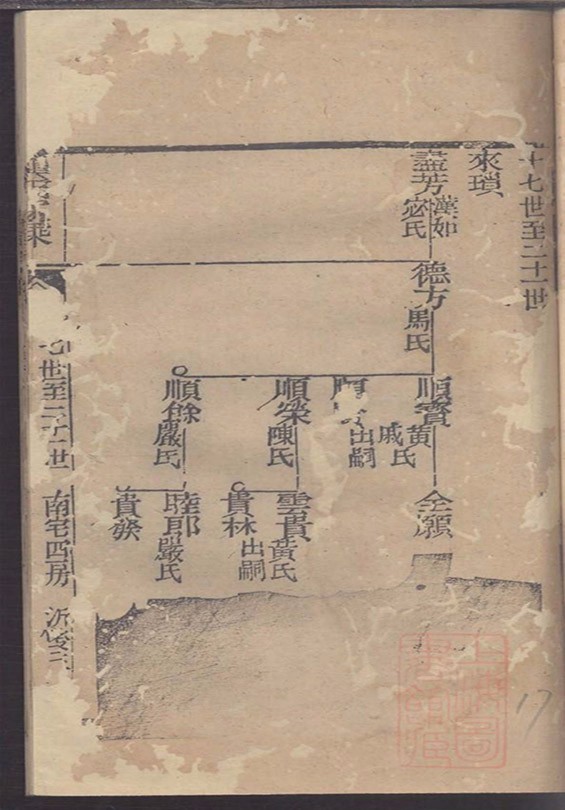 十七世至二十一世
來瓚
藎芳
漢如
宓氏
德方
馬氏
順寶
黃氏
戚氏
順
出嗣
順榮
陳氏
順餘
嚴氏
全灝
雲貴
黃氏
貴林
出嗣
睦郎
嚴氏
貴發
七世至二十一世
南宅四房
17